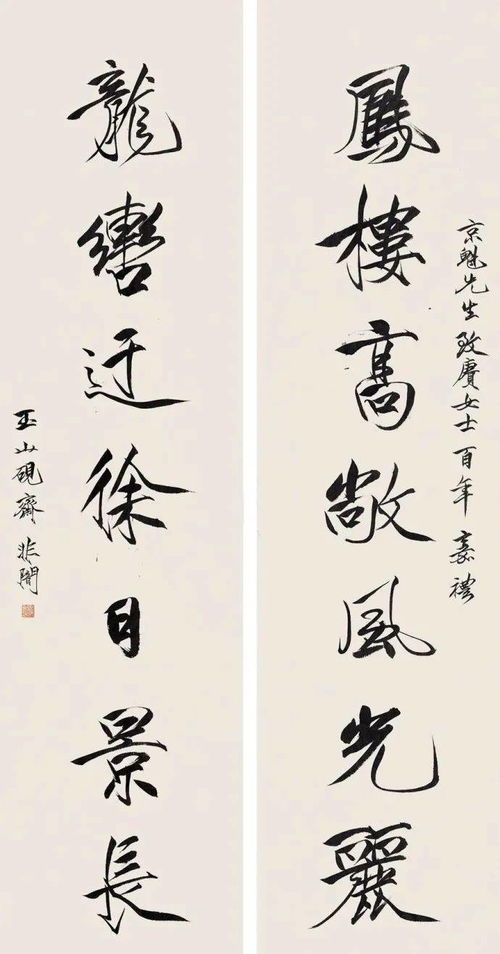 京魁先生致賡女士百年嘉禮
鳳樓高敞風光麗
龍轡迂徐日景長
玉山硯齋非闇